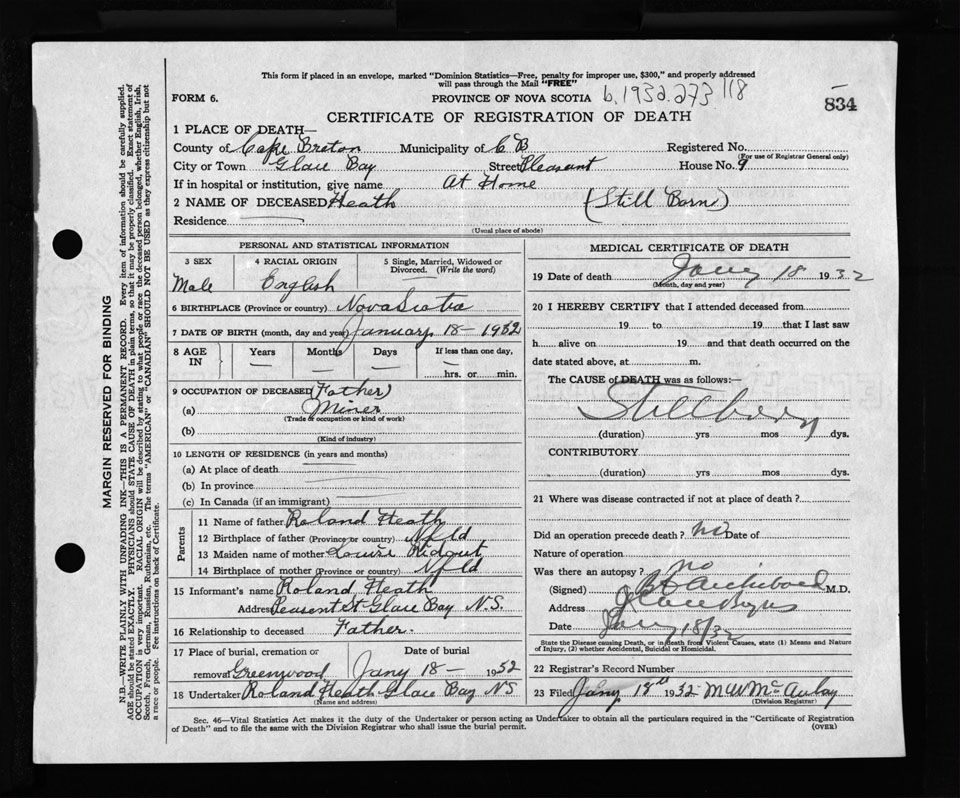 This form if placed in an envelope, marked "Dominion Statistics—Free, penalty for improper use, $300," and properly addressed
will pass through the Mail "FREE"
FORM 6.
PROVINCE OF NOVA SCOTIA
b.1932.273 118
834
CERTIFICATE OF REGISTRATION OF DEATH
1 PLACE OF DEATH—
County of Cape Breton Municipality of C B Registered No.
(For use of Registrar General only)
City or Town Glace Bay Street Pleasant House No. 9
If in hospital or institution, give name At Home
2 NAME OF DECEASED Heath (Still Born)
Residence
(Usual place of abode)
PERSONAL AND STATISTICAL INFORMATION
3 SEX
Male
4 RACIAL ORIGIN
English
5 Single, Married, Widowed or
Divorced. (Write the word)
6 BIRTHPLACE (Province or country) Nova Scotia
7 DATE OF BIRTH (month, day and year) January 18– 1932
8 AGE IN
Years —
Months —
Days —
If less than one day,
— hrs. or min.
9 OCCUPATION OF DECEASED (Father)
(a) Miner
(Trade or occupation or kind of work)
(b)
(Kind of industry)
10 LENGTH OF RESIDENCE (in years and months)
(a) At place of death
(b) In province
(c) In Canada (if an immigrant)
Parents
11 Name of father Roland Heath
12 Birthplace of father (Province or country) Nfld
13 Maiden name of mother Louise Ridout
14 Birthplace of mother (Province or country) Nfld
15 Informant's name Roland Heath
Address Pleasent St Glace Bay N.S.
16 Relationship to deceased Father.
17 Place of burial, cremation or
removal Greenwood
Date of burial
Jany 18– 1932
18 Undertaker Roland Heath Glace Bay NS
(Name and address)
MEDICAL CERTIFICATE OF DEATH
19 Date of death Jany 18 1932
(Month, day and year)
20 I HEREBY CERTIFY that I attended deceased from
19 to 19 that I last saw
h alive on 19 and that death occurred on the
date stated above, at m.
The CAUSE of DEATH was as follows:—
Stillborn
(duration) yrs mos dys.
CONTRIBUTORY
(duration) yrs mos dys.
21 Where was disease contracted if not at place of death?
Did an operation precede death? no Date of
Nature of operation
Was there an autopsy? no
(Signed) Archibald M.D.
Address Glace Bay NS
Date Jany 18/32
State the Disease causing Death, or in death from Violent Causes, state (1) Means and Nature
of Injury, (2) whether Accidental, Suicidal or Homicidal.
22 Registrar's Record Number
23 Filed Jany 19th 1932 M W McAulay
(Division Registrar)
Sec. 46—Vital Statistics Act makes it the duty of the Undertaker or person acting as Undertaker to obtain all the particulars required in the "Certificate of Registration
of Death" and to file the same with the Division Registrar who shall issue the burial permit.
(OVER)
MARGIN RESERVED FOR BINDING
N.B.—WRITE PLAINLY WITH UNFADING INK—THIS IS A PERMANENT RECORD. Every item of information should be carefully supplied.
AGE should be stated EXACTLY. PHYSICIANS should STATE CAUSE OF DEATH in plain terms, so that it may be properly classified. Exact statement of
OCCUPATION is very important. RACIAL ORIGIN will be described by stating to what people or race the deceased person belonged, whether English, Irish,
Scotch, French, German, Russian, Ruthenian, etc. The terms "AMERICAN" or "CANADIAN" SHOULD NOT BE USED as they express citizenship but not
a race or people. Fee instructions on back of Certificate.